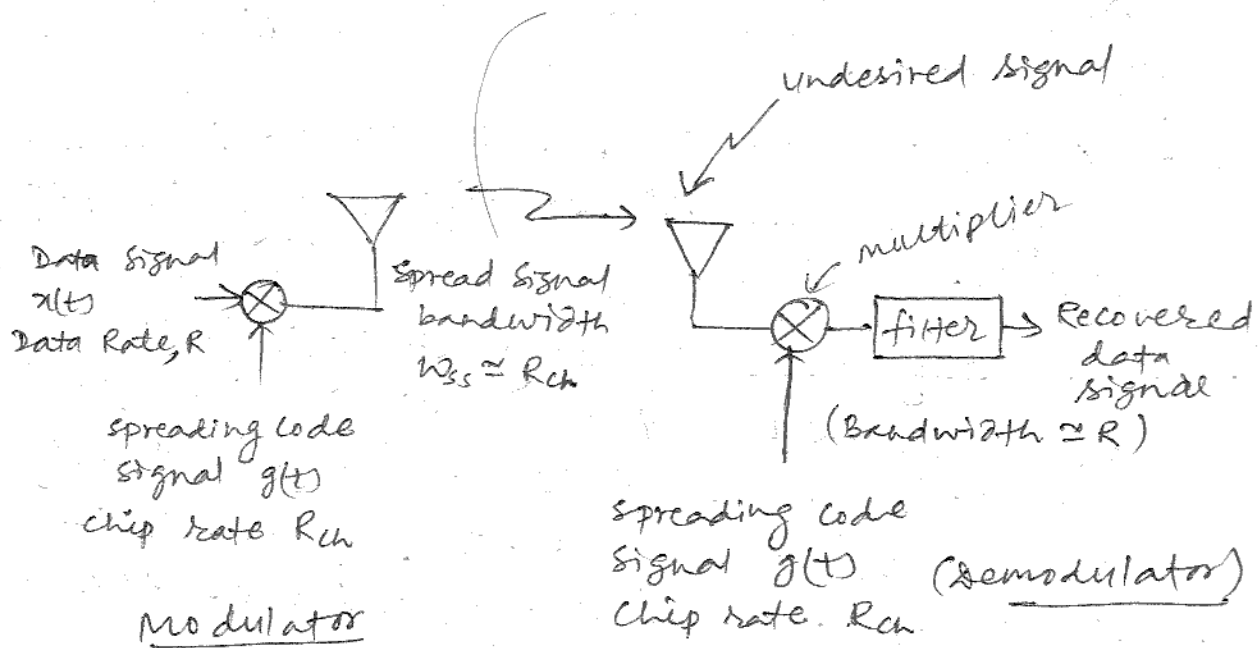 undesired signal
multiplier
Data Signal
x(t)
Data Rate, R
Spread Signal
bandwidth
Wss ≃ Rch
filter
Recovered
data
signal
(Bandwidth ≃ R)
spreading code
signal g(t)
chip rate Rch
Modulator
spreading code
signal g(t)
Chip rate. Rch
(Demodulator)